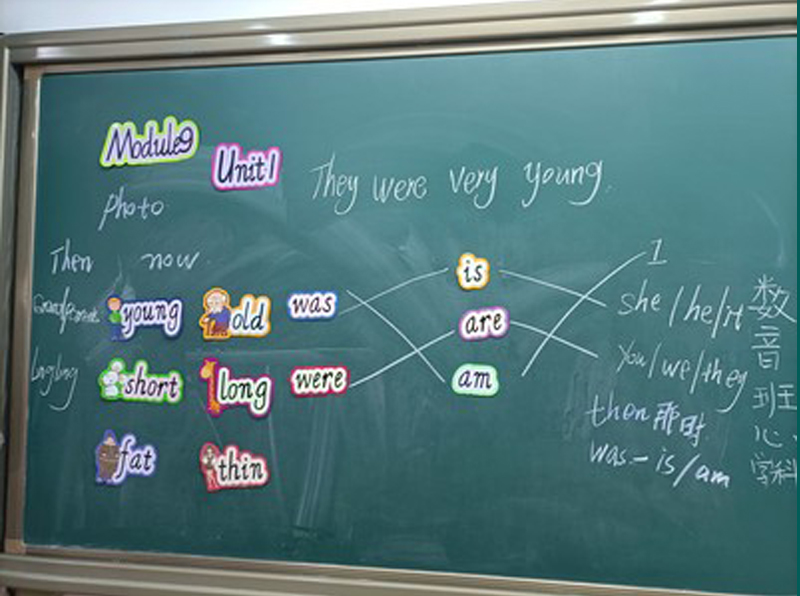 Module9 Unit1 They were very young.
photo
Then now
Grandparents young old was is I
she/he/it
are
short long were am You/we/they
Lingling
then 那时
fat thin was-is/am
数
音
班
心.
学科